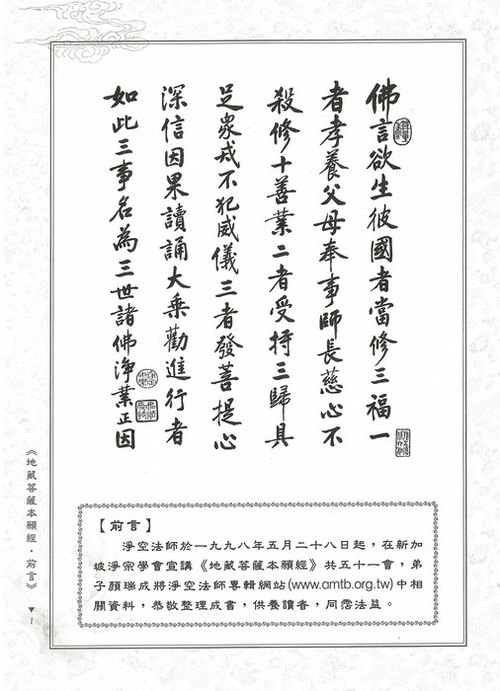 佛言欲生彼國者當修三福一
者孝養父母奉事師長慈心不
殺修十善業二者受持三歸具
足眾戒不犯威儀三者發菩提心
深信因果讀誦大乘勸進行者
如此三事名為三世諸佛淨業正因
【前言】
淨空法師於一九九八年五月二十八日起，在新加
坡淨宗學會宣講《地藏菩薩本願經》共五十一會，弟
子顏瑞成將淨空法師專輯網站(www.amtb.org.tw)中相
關資料，恭敬整理成書，供養讀者，同霑法益。
《地藏菩薩本願經・前言》 ▼ 1